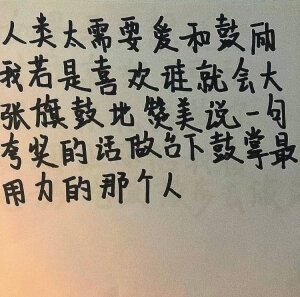 人类太需要爱和鼓励
我若是喜欢谁就会大
张旗鼓地赞美说一句
夸奖的话做台下鼓掌最
用力的那个人